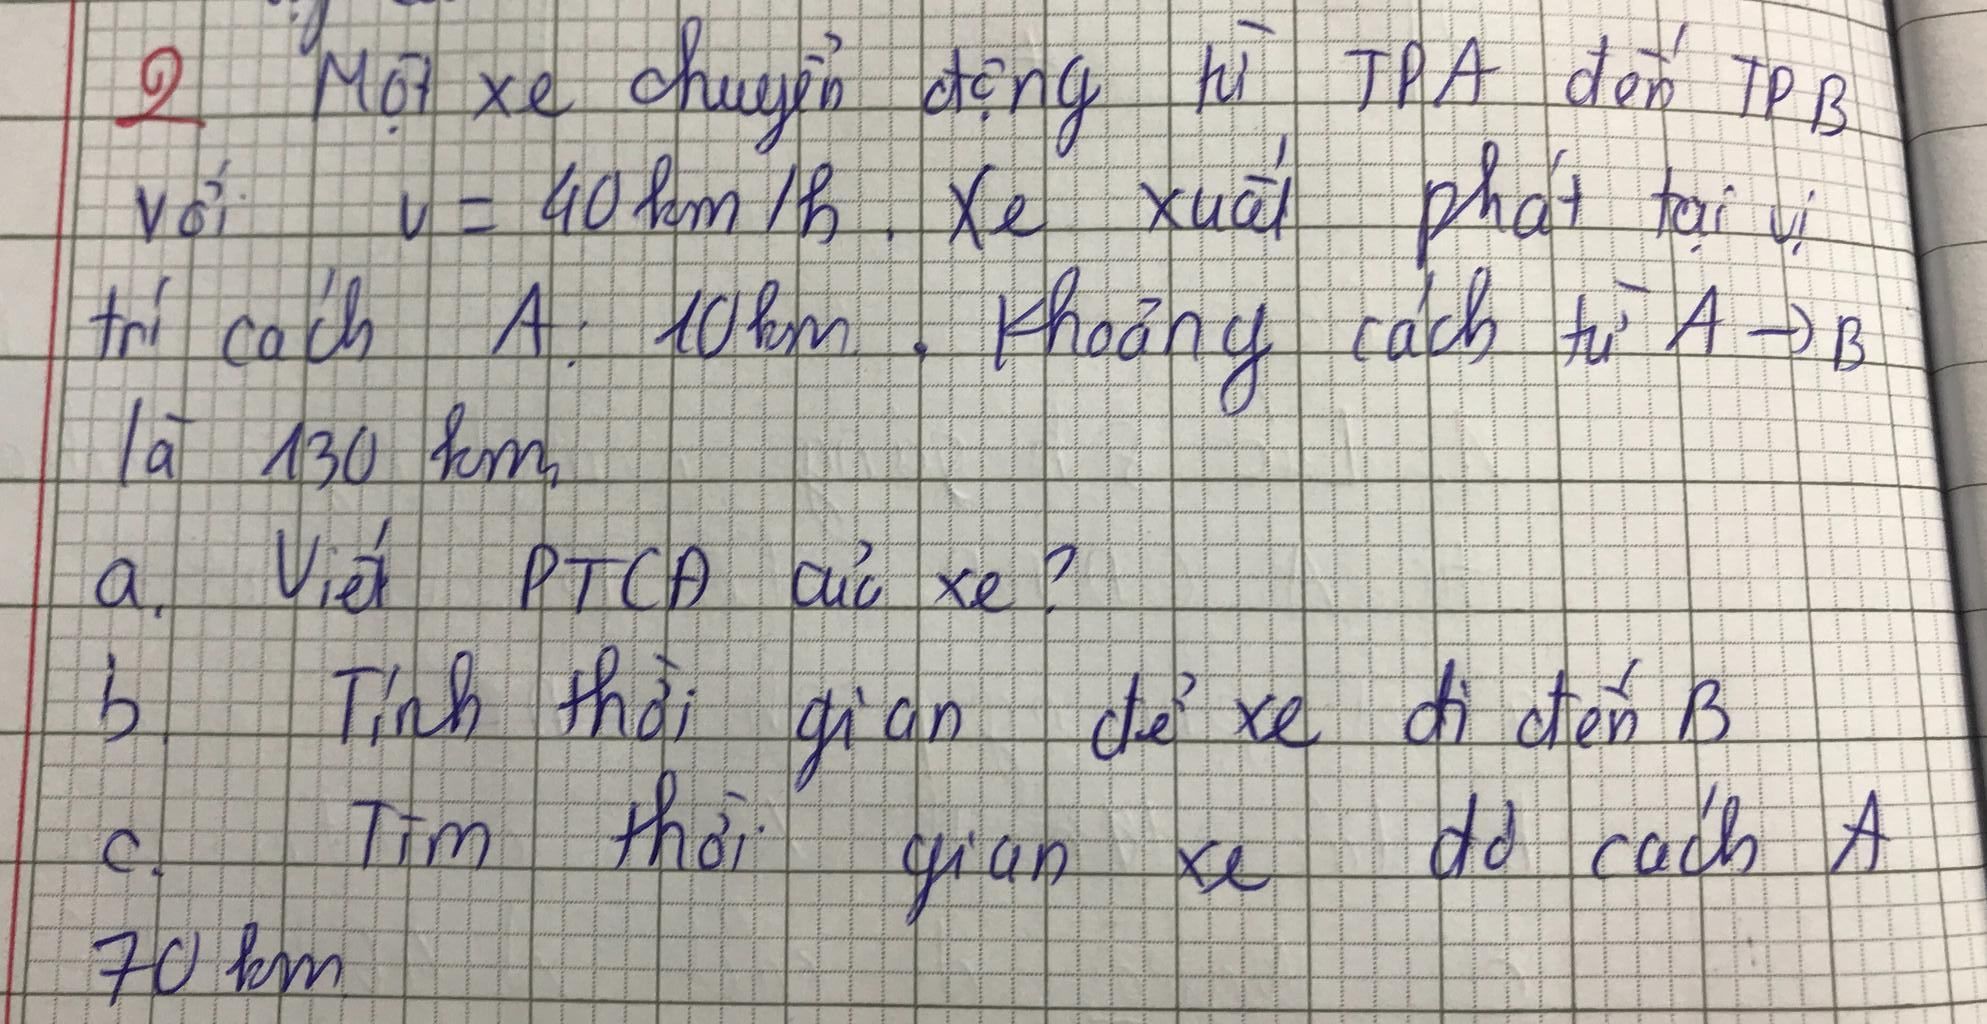 2 Một xe chuyển động từ TPA đến TPB
với v = 40km/h. Xe xuất phát tại vị
trí cách A. 10km. Khoảng cách từ A → B
là 130 km,
a. Viết PTCĐ của xe?
b Tính thời gian để xe đi đến B
c. Tìm thời gian xe đó cách A
70 km